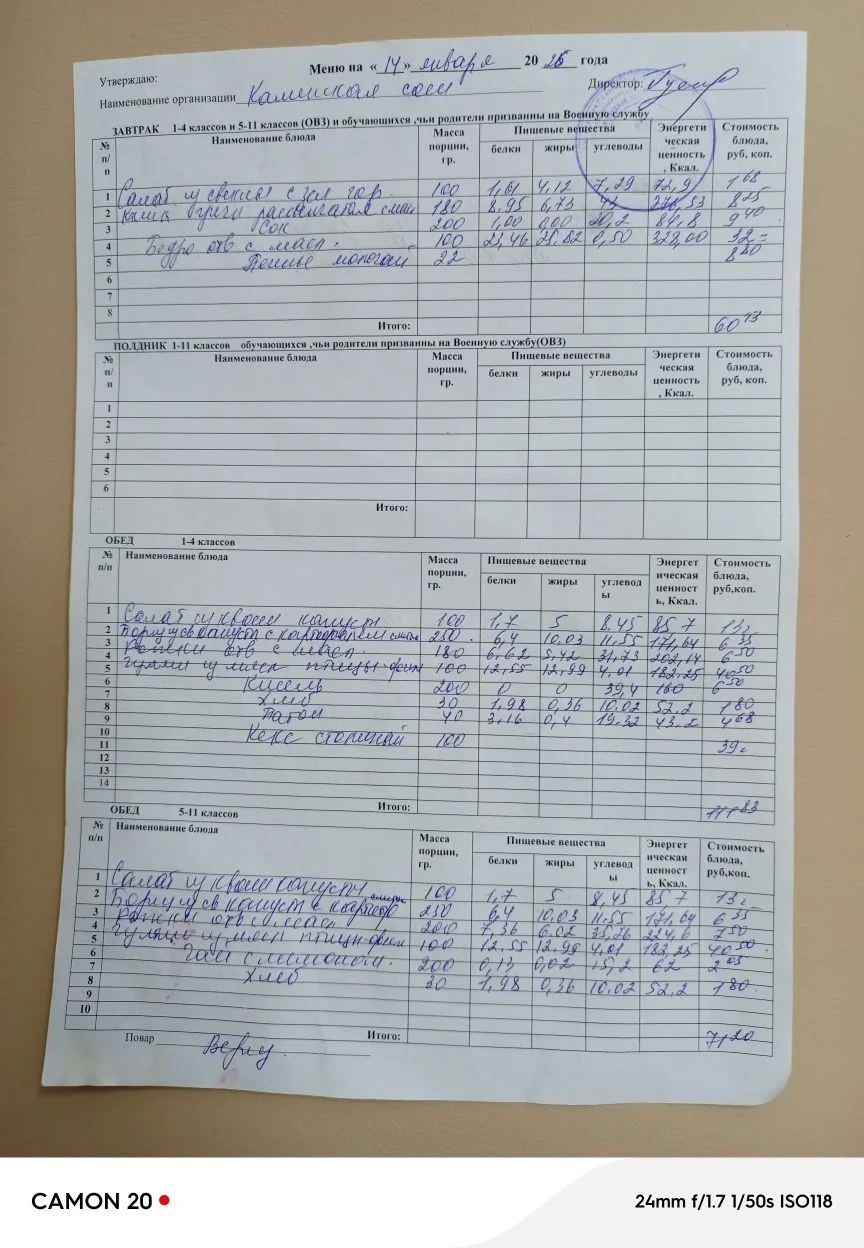 Меню на «14» января 2026 года
Утверждаю:
Директор:
Наименование организации Каменская сош
ЗАВТРАК 1-4 классов и 5-11 классов (ОВЗ) и обучающихся ,чьи родители призванны на Военную службу
№ п/п Наименование блюда Масса порции, гр. Пищевые вещества белки жиры углеводы Энергети ческая ценность , Ккал. Стоимость блюда, руб, коп.
1 Салат из свеклы с зел гор. 100 1,61 4,12 7,29 72,9 1 68
2 каша гречн рассыпчатая с мас 180 8,95 6,73 43 53 8 25
3 сок 200 1,00 0,00 20,2 84,8 9 40
4 Бедро отв с масл. 100 23,46 25,82 0,50 328,00 32=
5 Печенье 22 8 80
6
7
8
Итого: 60 13
ПОЛДНИК 1-11 классов обучающихся ,чьи родители призванны на Военную службу(ОВЗ)
№ п/п Наименование блюда Масса порции, гр. Пищевые вещества белки жиры углеводы Энергети ческая ценность , Ккал. Стоимость блюда, руб, коп.
1
2
3
4
5
6
Итого:
ОБЕД 1-4 классов
№ п/п Наименование блюда Масса порции, гр. Пищевые вещества белки жиры углевод ы Энергет ическая ценност ь, Ккал. Стоимость блюда, руб,коп.
1 Салат из кваш капусты 100 1,7 5 8,45 85 7 13,
2 Борщ из св капусты с картофелем смет 250 6,4 10,03 11,55 171,64 6 35
3 Рожки отв с масл. 180 6,62 5,42 31,73 202,14 6 50
4 гуляш из мяса птицы филе 100 12,55 12,99 4,01 182,25 40 50
5
6 Кисель 200 0 0 39,4 160 6 50
7 хлеб 30 1,98 0,36 10.02 52.2 1 80
8 Батон 40 3,16 0,4 19.32 43.2 4 68
9
10 Кекс столичный 100 39,
11
12
13
14
Итого: 111 83
ОБЕД 5-11 классов
№ п/п Наименование блюда Масса порции, гр. Пищевые вещества белки жиры углевод ы Энергет ическая ценност ь, Ккал. Стоимость блюда, руб,коп.
1 Салат из кваш капусты 100 1,7 5 8,45 85 7 13,
2 Борщ из св капусты с картоф сметан 250 6,4 10,03 11,55 171,64 6 35
3 Рожки отв с масл 200 7,36 6.02 35.26 224,6 7 50
4 гуляш из мяса птицы филе 100 12,55 12,99 4,01 182,25 40 50
5
6 Чай с лимоном. 200 0,13 0,02 15,2 62 2 05
7 хлеб 30 1,98 0,36 10.02 52.2 1 80
8
9
10
Итого: 71 20
Повар
CAMON 20
24mm f/1.7 1/50s ISO118